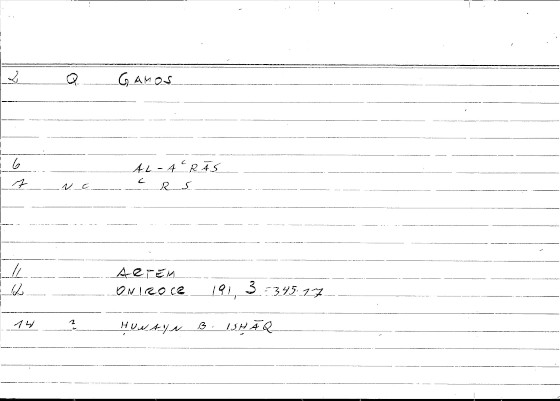 2 Q GAMOS
6 AL-AʿRĀS
7 N C ʿ R S
11 ARTEM
12 ONIROCR 191, 3 = 345.17
14 2 ḤUNAYN B. ISḤĀQ